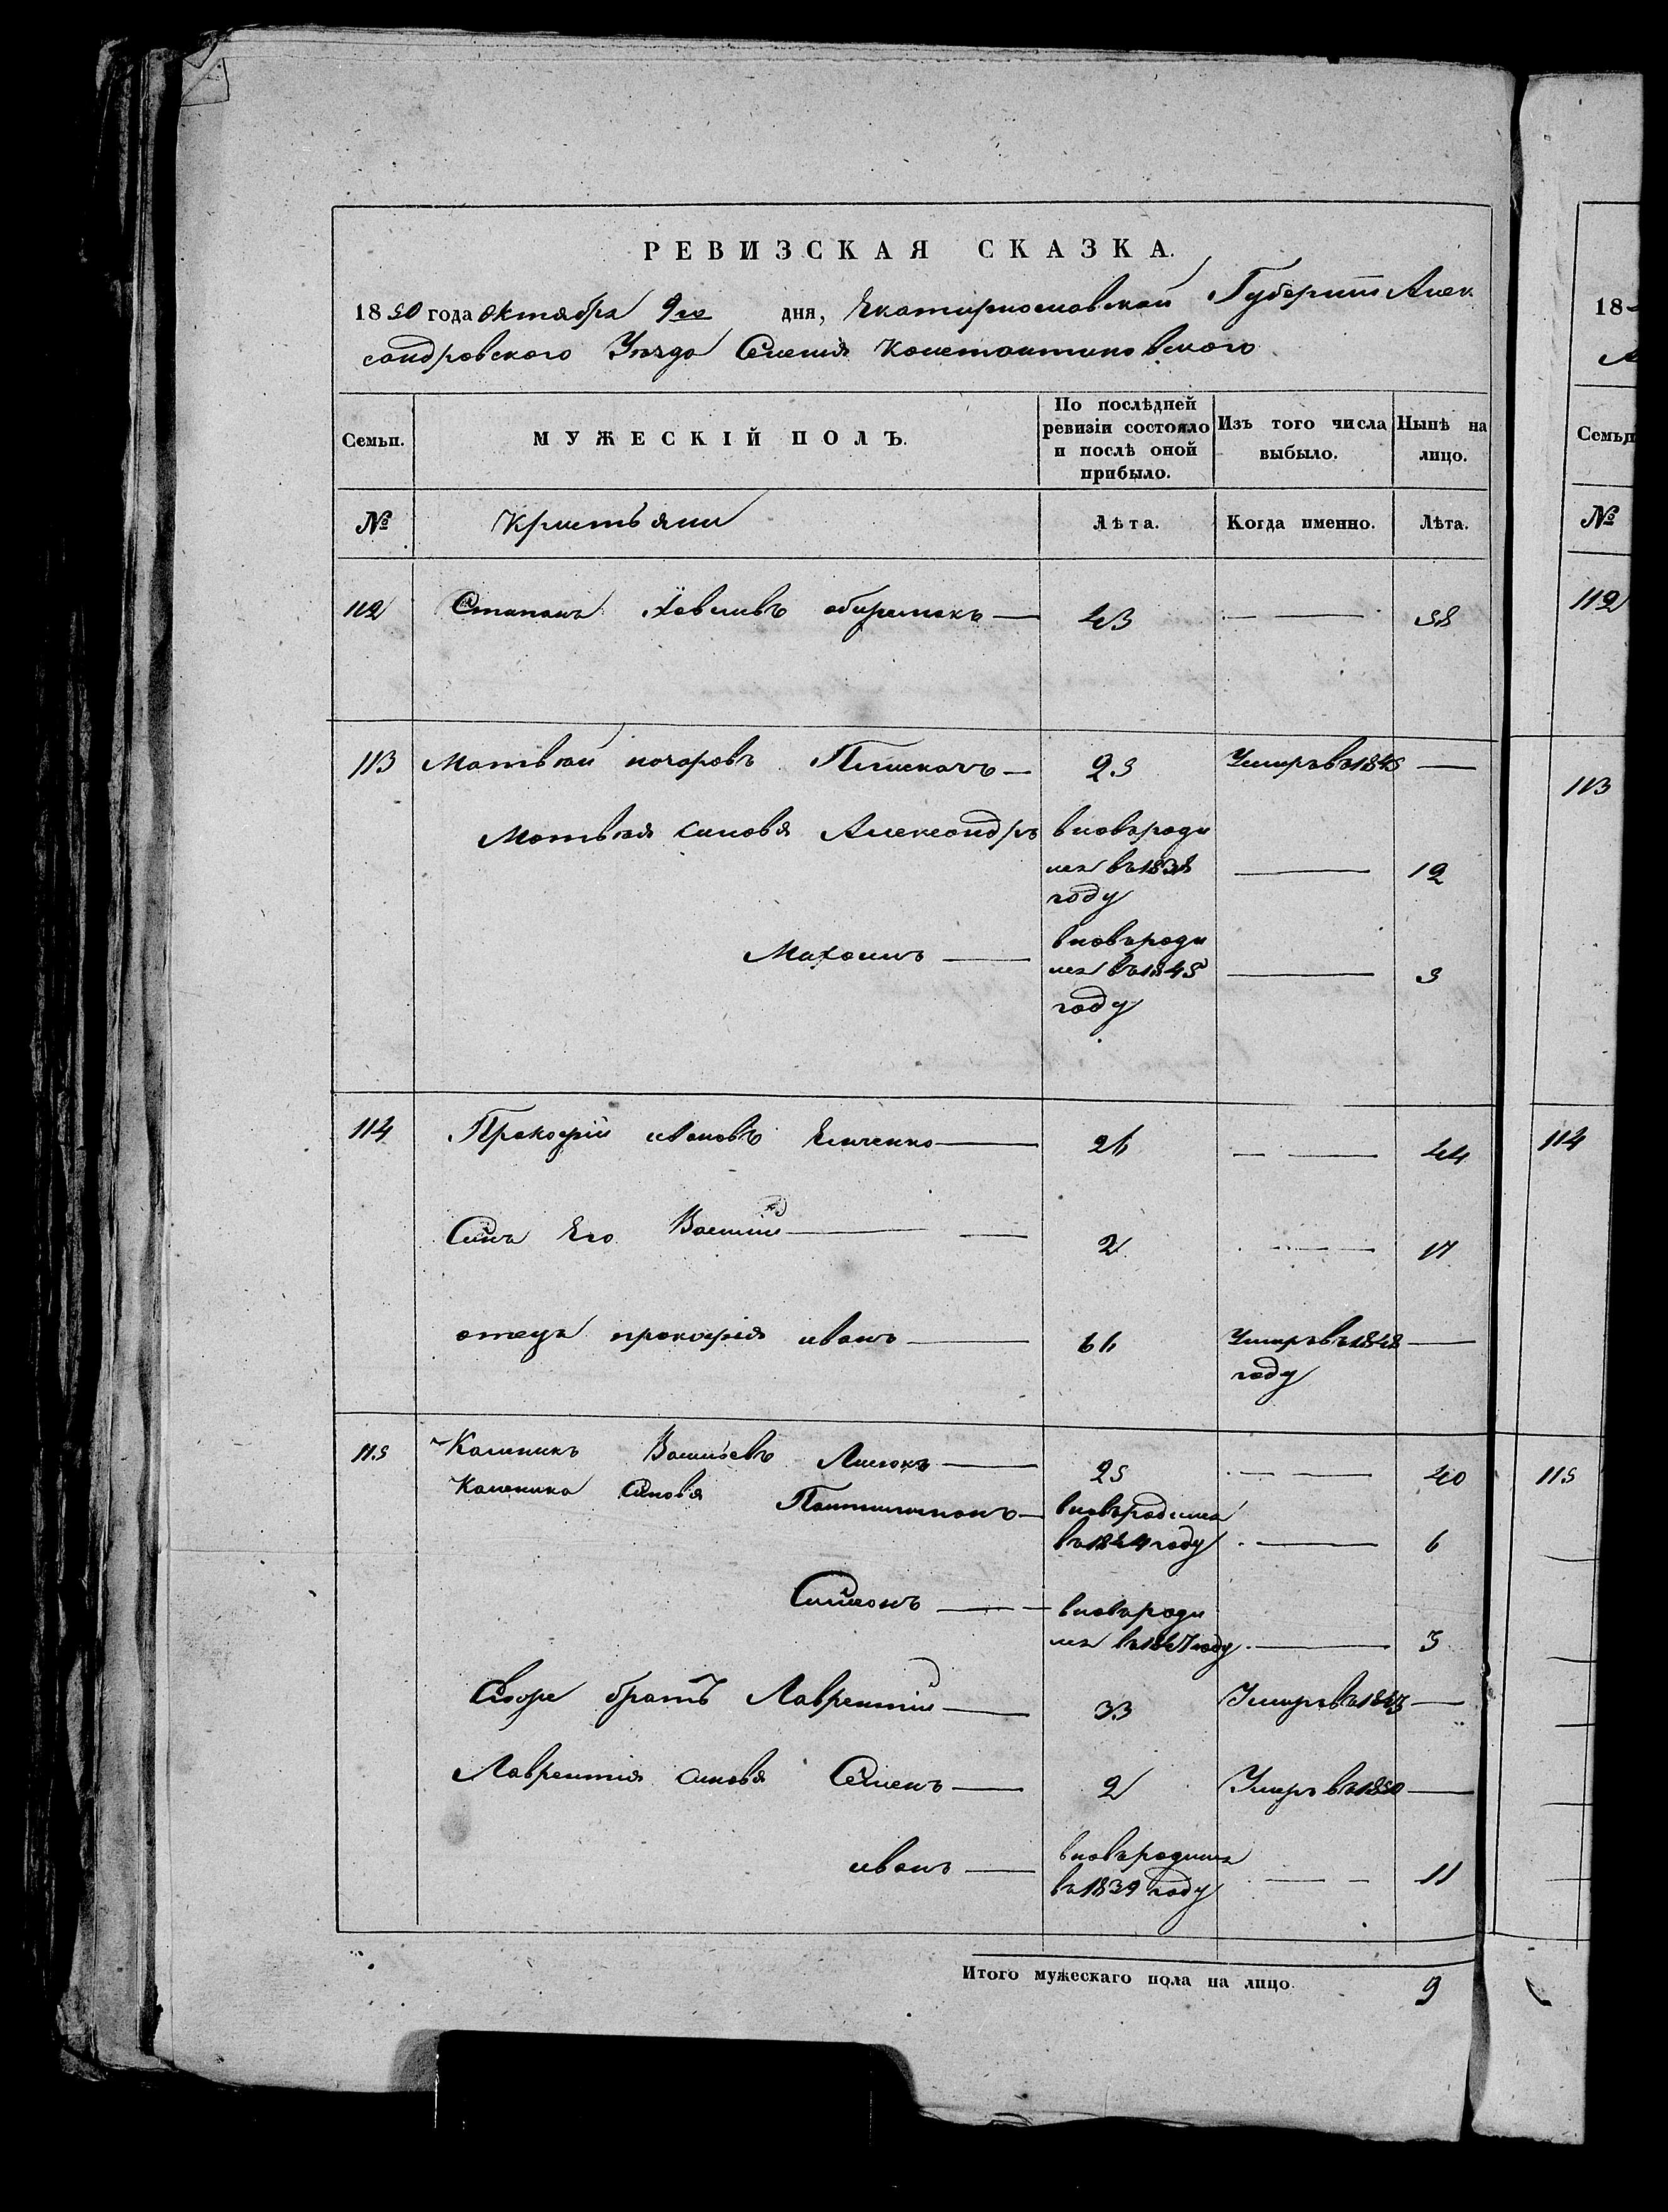 РЕВИЗСКАЯ СКАЗКА.
1850 года октября 9го дня, Екатеринославской Губернии Алек
сандровского Уезда Селения Константиновского
Семьи. МУЖЕСКІЙ ПОЛЪ. По послѣдней ревизіи состояло и послѣ оной прибыло. Изъ того числа выбыло. Нынѣ на лицо.
№ Кристьяни Лѣта. Когда именно. Лѣта.
112 Степанъ 43 — 58
113 Матвѣй Плискачъ — 23 Умеръ въ 1845 —
Матвѣя синовя Александръ вновьроди
лся въ 1838 — 12
году
— вновьроди
лся въ 1845 — 5
году
114 Прокофій ивановъ Енченко — 26 — 44
Синъ Его Василий — 2 — 17
отецъ прокофія иванъ — 66 Умеръ въ 1848 —
году
115 Каленикъ Васильевъ — 25 — 40
Каленика Синовя Пантилимонъ — вновьродился
въ 1844 году — 6
Симеонъ — вновьроди
лся въ 1847 году — 3
братъ Лаврентій — 33 Умеръ въ 1843 —
Лаврентія синовя Семенъ — 2 Умеръ въ 1850 —
иванъ — вновьродился
въ 1839 году — 11
Итого мужескаго пола на лицо 9
18
Семьи
№
112
113
114
115